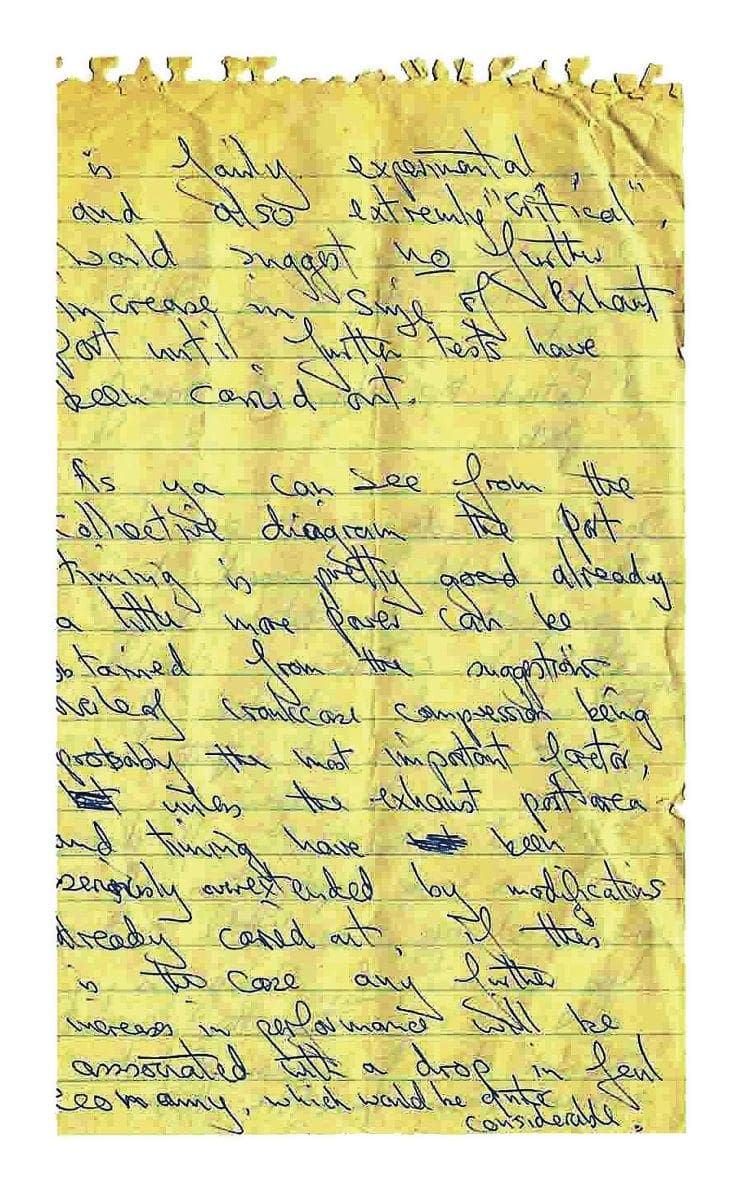 is fairly experimental,
and also extremely "critical",
would suggest no further
increase in size of exhaust
port until further tests have
been carried out.
As ya can see from the
collective diagram the port
timing is pretty good already
a little more power can be
obtained from the suggestions
crankcase compression being
probably the most important factor,
unless the exhaust port area
and timing have been
seriously overextended by modifications
already carried out, if this
is the case any further
increases in performance will be
associated with a drop in feul
economy, which would be quite
considerable.